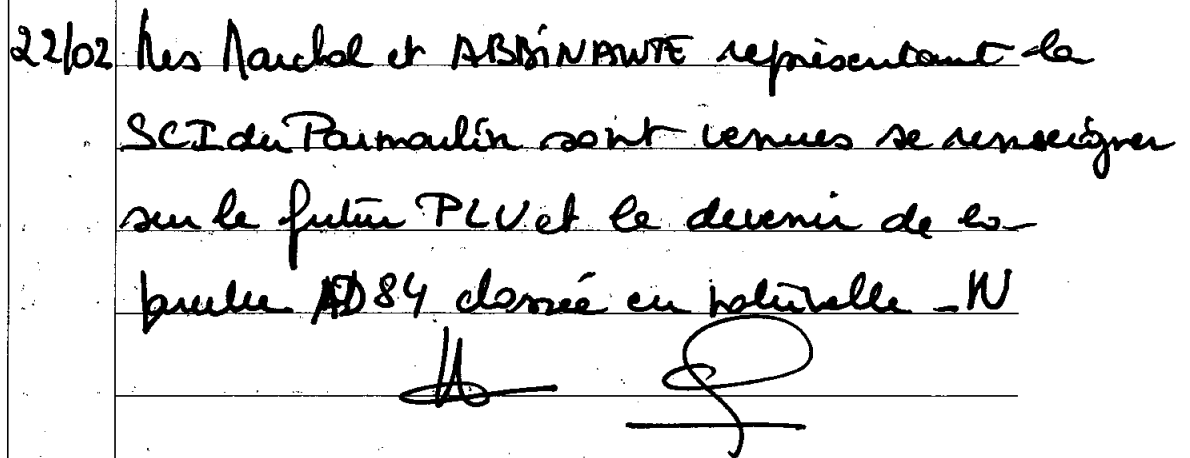 22/02 Mes Marchal et ABBINANTE représentant la
SCI du Parmoulin sont venues se renseigner
sur le futur PLU et le devenir de la
parcelle AD84 classée en naturelle - N